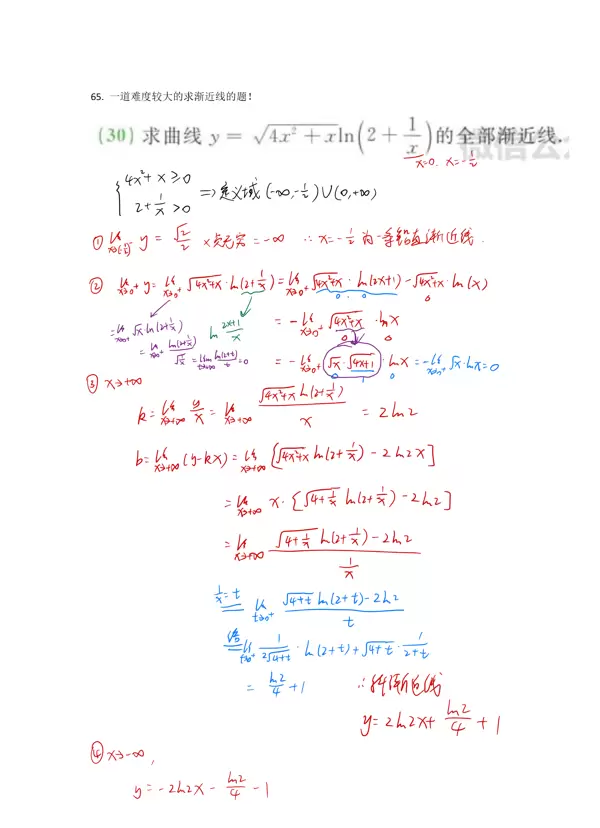 65. 一道难度较大的求渐近线的题!
(30) 求曲线 y = √(4x²+x) ln(2+1/x) 的全部渐近线.
x=0. x=-1/2
{ 4x²+x≥0
2+1/x>0 ⇒ 定义域 (-∞,-1/2)∪(0,+∞)
① lim x→(-1/2)⁻ y = √2/2 × 负无穷 = -∞ ∴ x=-1/2 为一条铅直渐近线.
② lim x→0+ y = lim x→0+ √(4x²+x)·ln(2+1/x) = lim x→0+ √(4x²+x)·ln(2x+1) - √(4x²+x)·ln(x)
0 0 0
= lim x→0+ √x·ln(2+1/x) ln (2x+1)/x = -lim x→0+ √(4x²+x)·lnx
= lim x→0+ ln(2+1/x)/(1/√x) = lim t→+∞ ln(2+t)/√t = 0 = -lim x→0+ √x·√(4x+1)·lnx = -lim x→0+ √x·lnx=0
③ x→+∞
k = lim x→+∞ y/x = lim x→+∞ √(4x²+x) ln(2+1/x) / x = 2ln2
b = lim x→+∞ (y-kx) = lim x→+∞ [√(4x²+x) ln(2+1/x) - 2ln2x]
= lim x→+∞ x·{√(4+1/x) ln(2+1/x) - 2ln2]
= lim x→+∞ (√(4+1/x) ln(2+1/x) - 2ln2) / (1/x)
1/x=t lim t→0+ (√(4+t) ln(2+t) - 2ln2) / t
洛 lim t→0+ 1/(2√(4+t))·ln(2+t)+√(4+t)·1/(2+t)
= ln2/4 +1 ∴斜渐近线
y=2ln2x+ ln2/4 +1
④ x→-∞,
y=-2ln2x - ln2/4 -1